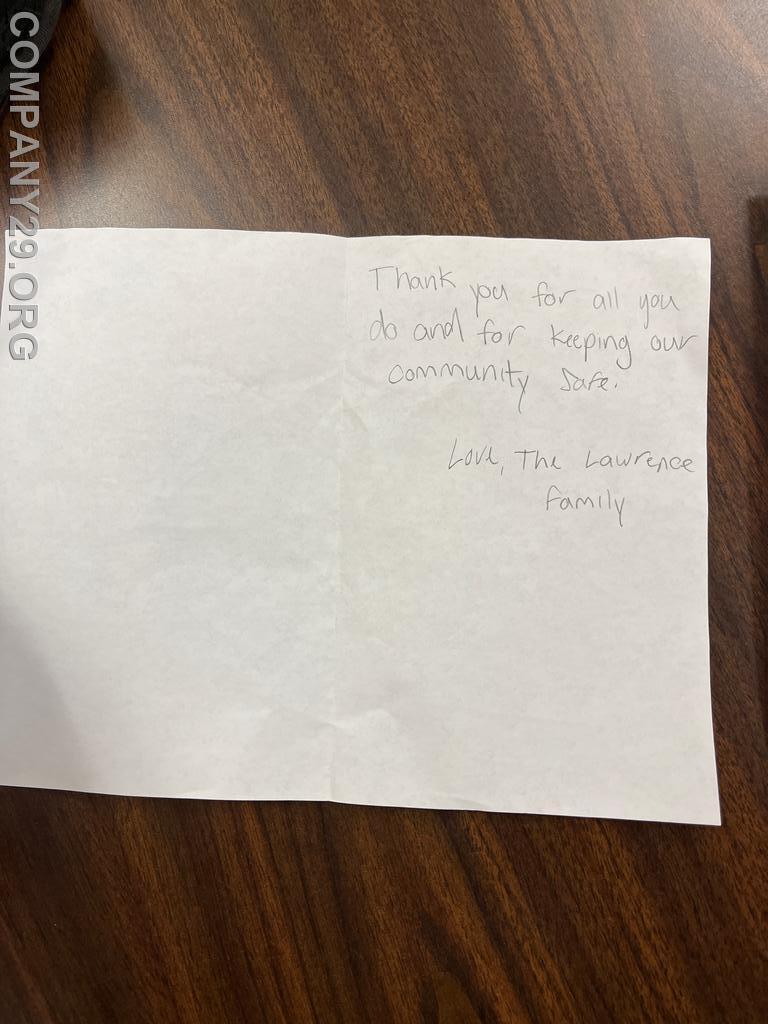 COMPANY29.ORG
Thank you for all you
do and for keeping our
community safe.
Love, The Lawrence
family